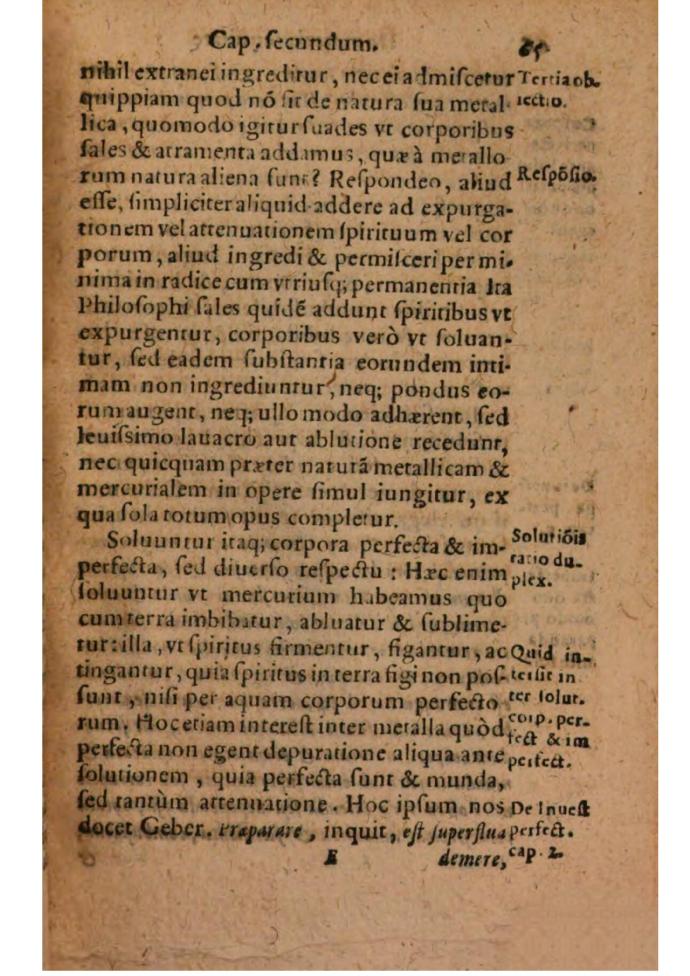 Cap. secundum.
65
nihil extranei ingreditur, nec ei admiscetur
Tertia ob-
quippiam quod nó sit de natura sua metal-
iectio.
lica, quomodo igitur suades vt corporibus
sales & atramenta addamus, quæ à metallo
rum natura aliena sunt? Respondeo, aliud
Respõsio.
esse, simpliciter aliquid addere ad expurga-
tionem vel attenuationem spirituum vel cor
porum, aliud ingredi & permisceri per mi-
nima in radice cum vtriusq; permanentia Ita
Philosophi sales quidẽ addunt spiritibus vt
expurgentur, corporibus verò vt soluan-
tur, sed eadem substantia eorundem inti-
mam non ingrediuntur, neq; pondus eo-
rum augent, neq; ullo modo adhærent, sed
leuissimo lauacro aut ablutione recedunt,
nec quicquam præter naturã metallicam &
mercurialem in opere simul iungitur, ex
qua sola totum opus completur.
Soluuntur itaq; corpora perfecta & im-
Solutiõis
perfecta, sed diuerso respectu : Hæc enim
ratio du-
soluuntur vt mercurium habeamus quo
plex.
cum terra imbibatur, abluatur & sublime-
tur: illa, vt spiritus firmentur, figantur, ac
Quid in-
tingantur, quia spiritus in terra figi non pos-
tersit in
sunt, nisi per aquam corporum perfecto
ter solut.
rum. Hoc etiam interest inter metalla quòd
corp. per-
perfecta non egent depuratione aliqua ante
fect & im
solutionem, quia perfecta sunt & munda,
perfect.
sed tantùm attenuatione. Hoc ipsum nos
De Inuest
docet Geber. Præparare, inquit, est superflua
perfect.
E demere,
cap. 2.